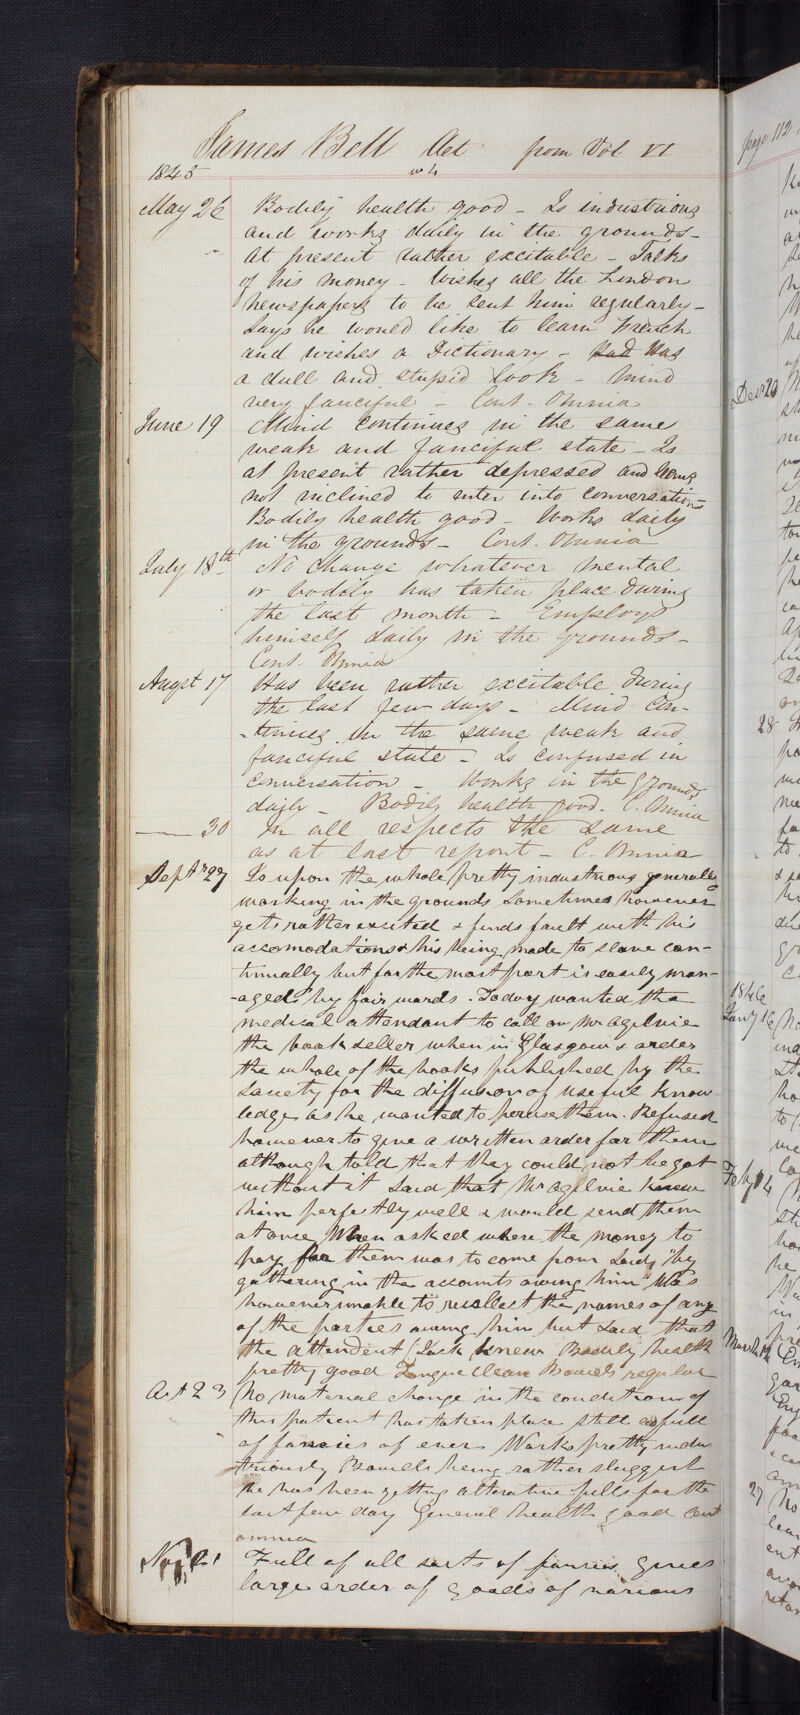 James Bell Aet from Vol VI
1845
May 26 Bodily health good - Is industrious
and works daily in the grounds -
At present rather excitable - Talks
of his money - Wishes all the London
newspapers to be sent him regularly -
Says he would like to learn French
and wishes a Dictionary - Has
a dull and stupid look - Mind
very fanciful - Cont. Omnia
June 19 Mind continues in the same
weak and fanciful state - Is
at present rather depressed and
not inclined to enter into conversation -
Bodily health good - Works daily
in the grounds - Cont. Omnia
July 18th No change whatever mental
or bodily has taken place during
the last month - Employs
himself daily in the grounds -
Cont. Omnia
Augst 17 Has been rather excitable during
the last few days - Mind con-
-tinues in the same weak and
fanciful state - Is confused in
conversation - Works in the grounds
daily - Bodily health good. C. Omnia
30 In all respects the same
as at last report - C. Omnia
Septr 27 Is upon the whole pretty industrious generally
working in the grounds Sometimes however
gets rather excited & finds fault with his
accomodations & his being made to slave con-
tinually but for the most part is easily man-
-aged by fair words. Today wanted the
medical attendant to call on Mr Ogilvie
the bookseller when in Glasgow & order
the whole of the books published by the
Society for the diffusion of useful know
ledge as he wanted to peruse them. Refused
however to give a written order for them
although told that they could not be got
without it Said that Mr Ogilvie knew
him perfectly well & would send them
at once When asked where the money to
pay for them was to come from Said, "by
gathering in the accounts owing him" Was
however unable to recollect the names of any
of the parties owing him but said that
the attendent Jack knew Bodily health
pretty good Tongue clean Bowels regular
Oct 23 No material change in the condition of
this patient has taken place still as full
of fancies as ever Works pretty indus
triously Bowels being rather sluggish
he has been getting alterative pills for the
last few day General health good Cont
omnia
Nov 21 Full of all sorts of fancies gives
large order of goods of various
page 112
Decr 20
28
1846
Jany 16
Feby 14
March
27